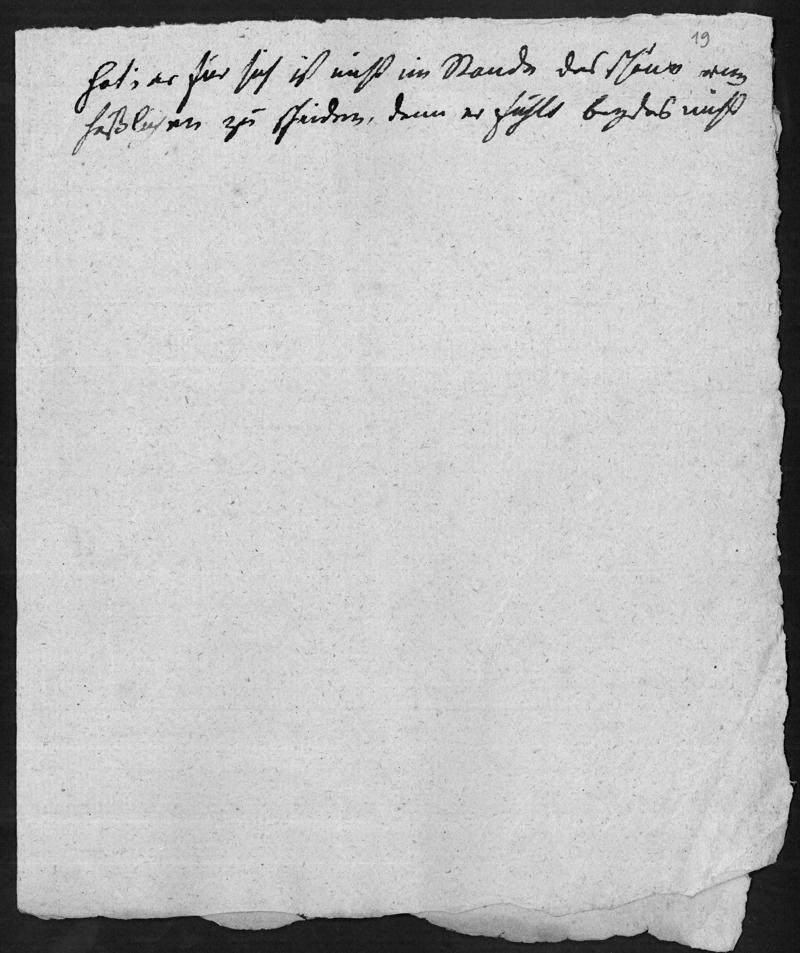 19
hat; er für sich ist nicht im Stande das schöne vom
häßlichen zu scheiden, denn er fühlt beydes nicht